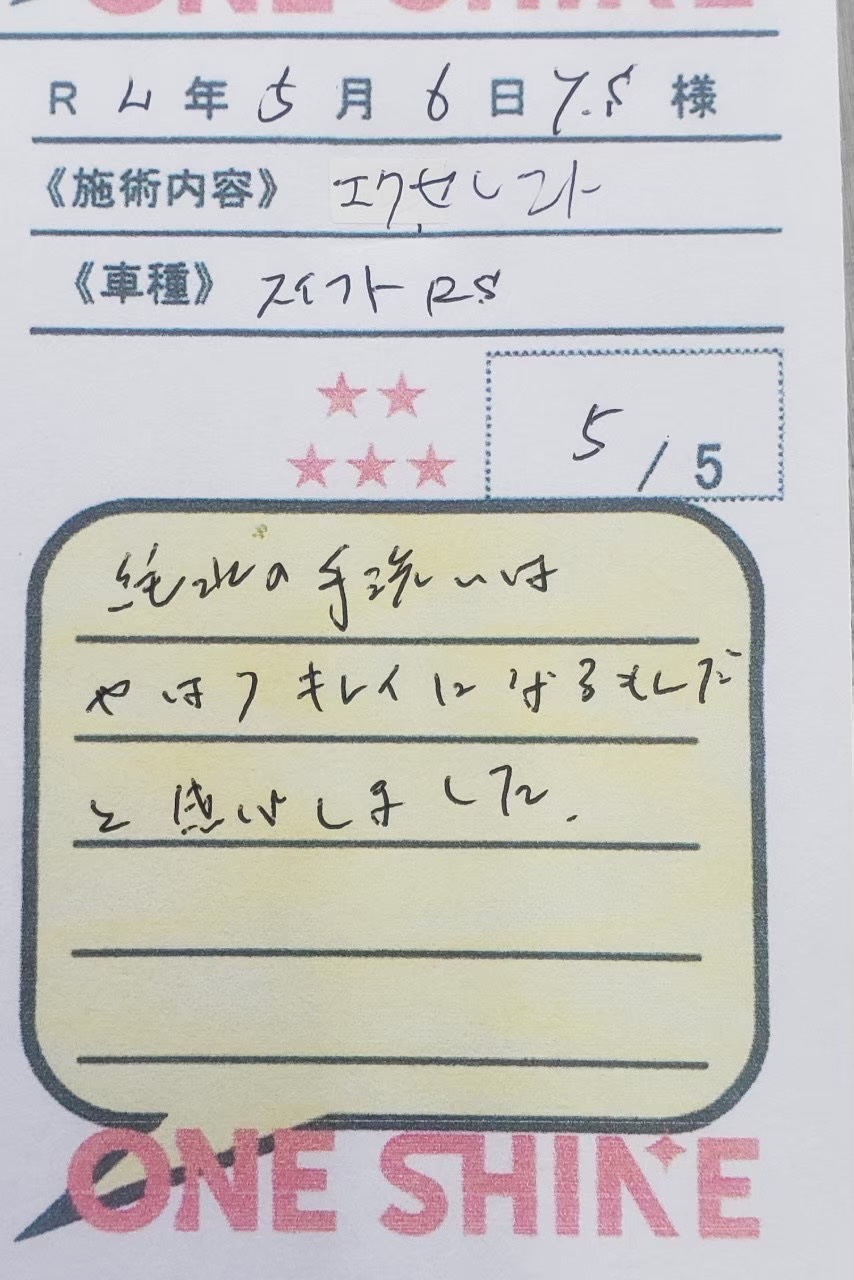 ONE SHINE
R 4年 5月 6日 Y.S 様
《施術内容》 エクセレント
《車種》 スイフトRS
5/5
純水の手洗いは
やはりキレイになるもんだ
と感じしました.
ONE SHINE